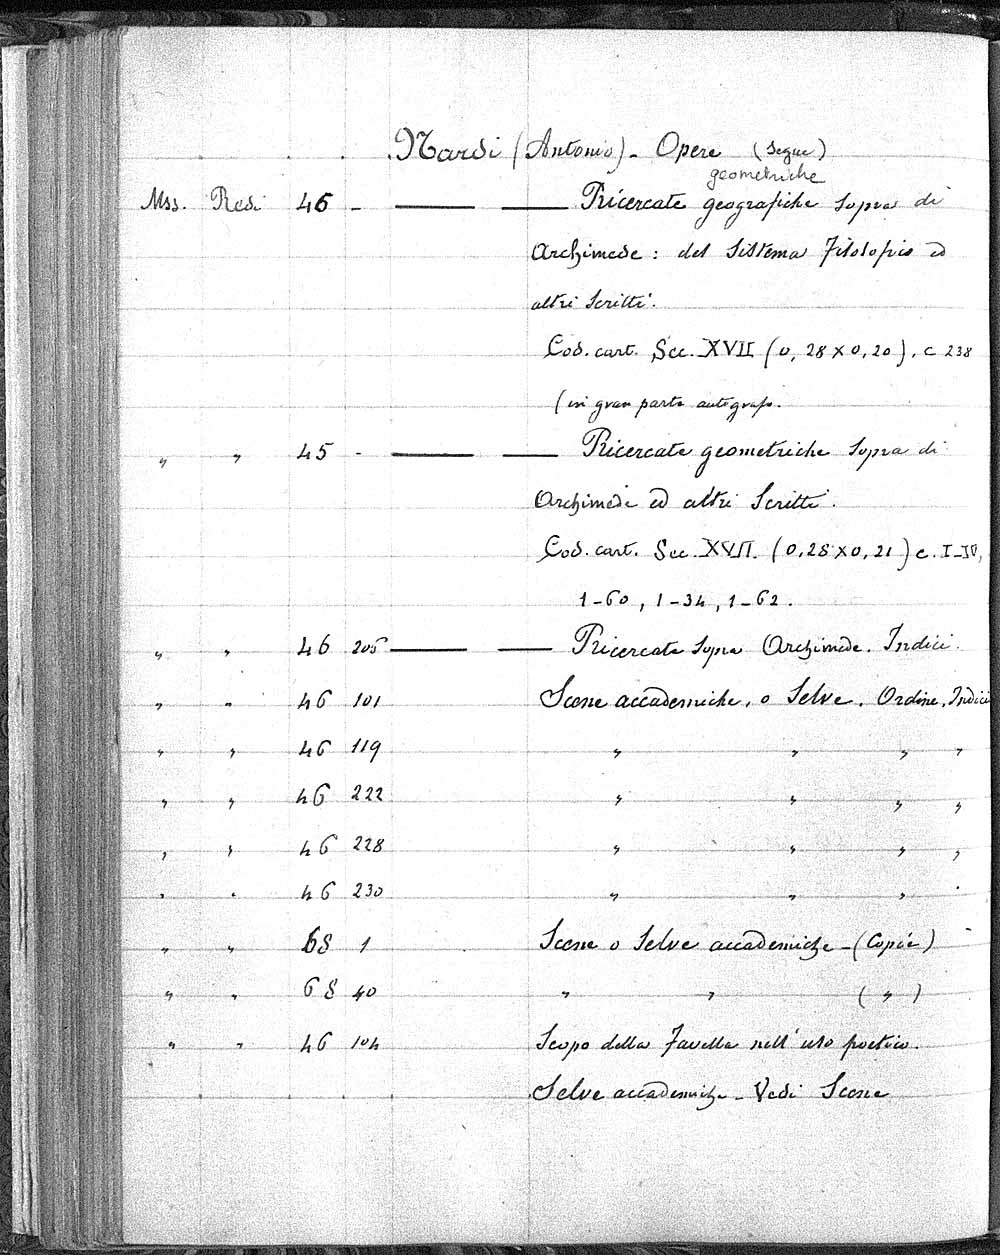 Nardi (Antonio) - Opere (segue)
geometriche
Mss. Redi 46 - — — Ricercate geografiche sopra di
Archimede : del Sistema Filolofico ed
altri Scritti.
Cod. cart. Sec. XVII (0,28 X 0,20), c 238
(in gran parte autografo.
" " 45 - — — Ricercate geometriche Sopra di
Archimede ed altri Scritti.
Cod. cart. Sec. XVII. (0,28 X 0,21) c. I-IV,
1-60, 1-34, 1-62.
" " 46 205 — — Ricercate Sopra Archimede. Indici.
" " 46 101 Scene accademiche, o Selve. Ordine, Indici
" " 46 119 " " " "
" " 46 222 " " " "
" " 46 228 " " " "
" " 46 230 " " " "
" " 68 1 Scene o Selve accademiche - (Copie)
" " 68 40 " " ( " )
" " 46 104 Scopo della Favella nell'uso poetico.
Selve accademiche - Vedi Scene